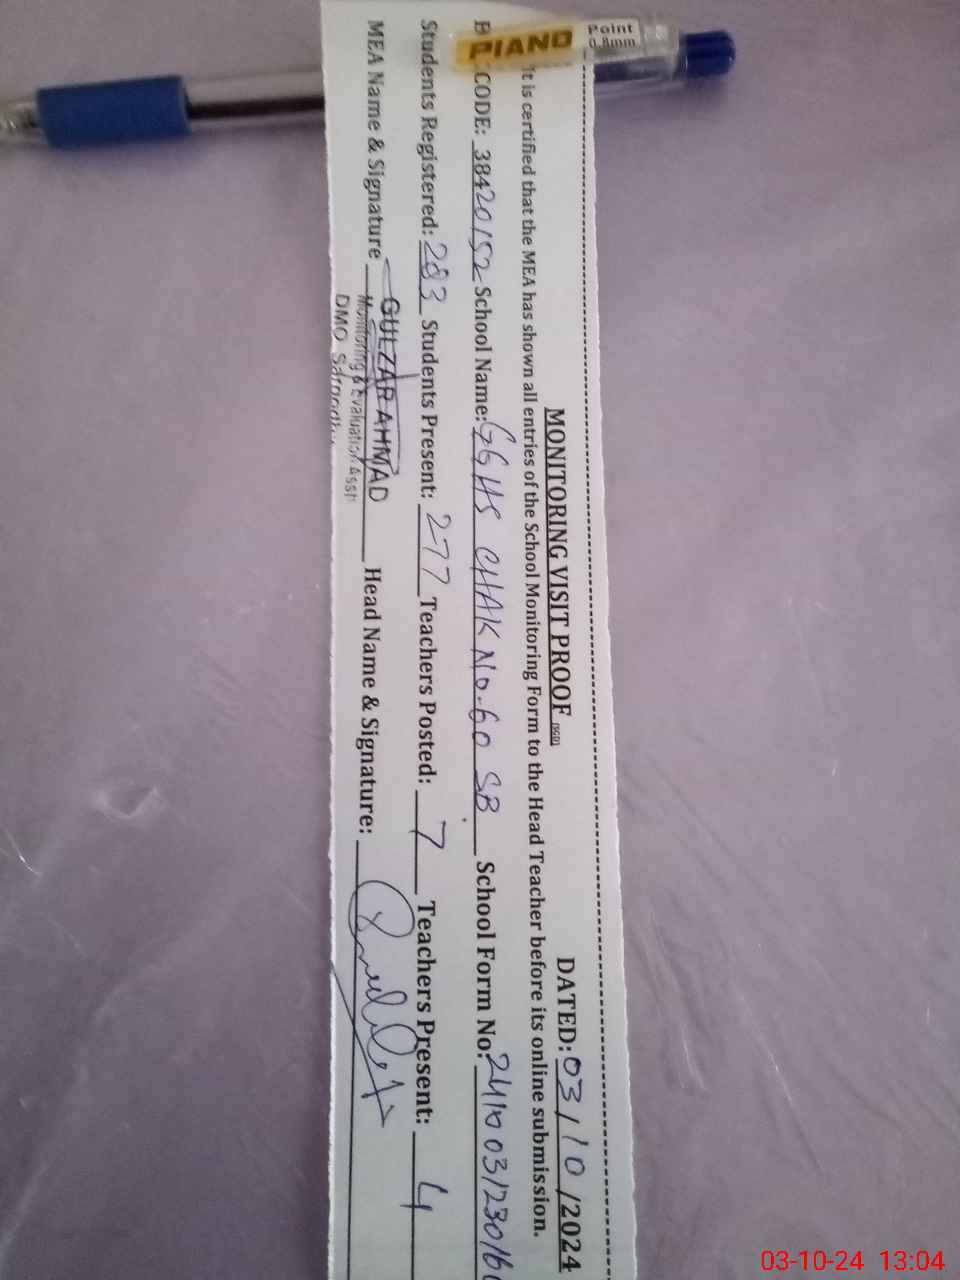 PIANO
Point
0.8mm
MONITORING VISIT PROOF (SGD)
DATED: 03/10/2024
It is certified that the MEA has shown all entries of the School Monitoring Form to the Head Teacher before its online submission.
CODE: 38420152 School Name: GGHS CHAK No. 60 SB. School Form No:
Students Registered: 283 Students Present: 277 Teachers Posted: 7 Teachers Present: 4
MEA Name & Signature GULZAR AHMAD Head Name & Signature:
Monitoring & Evaluation Asstt
DMO Sargodha
03-10-24 13:04